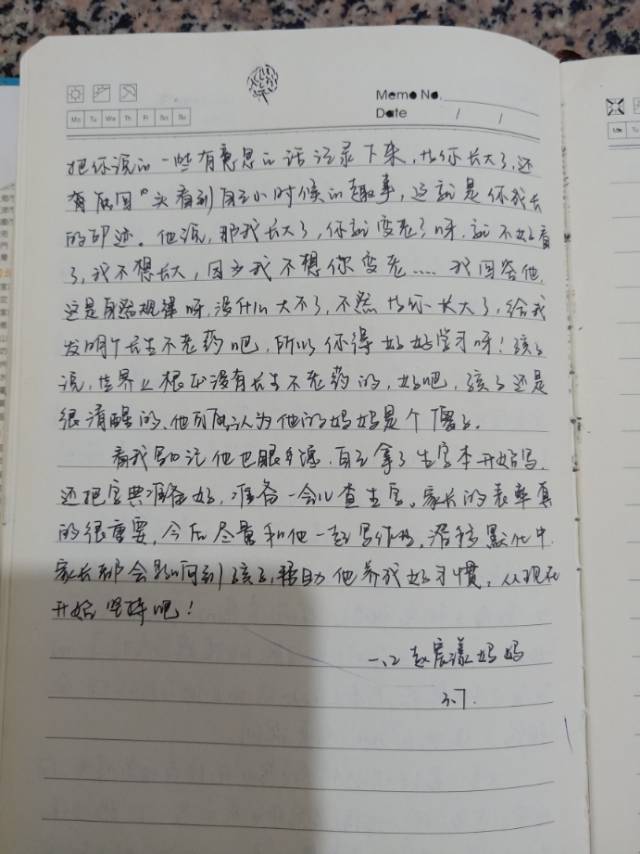 Memo No.
Date / /
Mo Tu We Th Fr Sa Su
把你说的一些有意思的话记录下来,当你长大了,还
有能回头看到自己小时候的趣事,这就是你成长
的印迹。他说,那我长大了,你就变老了呀,就不好看
了,我不想长大,因为我不想你变老....我回答他,
这是自然规律呀,没什么大不了,不然当你长大了,给我
发明个长生不老药吧,所以你得好好学习呀!孩子
说,世界上根本没有长生不老药的,好吧,孩子还是
很清醒的,他可能认为他的妈妈是个傻子。
看我写日记他也眼馋,自己拿了生字本开始写,
还把字典准备好,准备一会儿查生字。家长的表率真
的很重要,今后尽量和他一起写作业,潜移默化中
家长都会影响到孩子,帮助他养成好习惯,从现在
开始坚持吧!
一.2 赵宸漾妈妈
3.7.